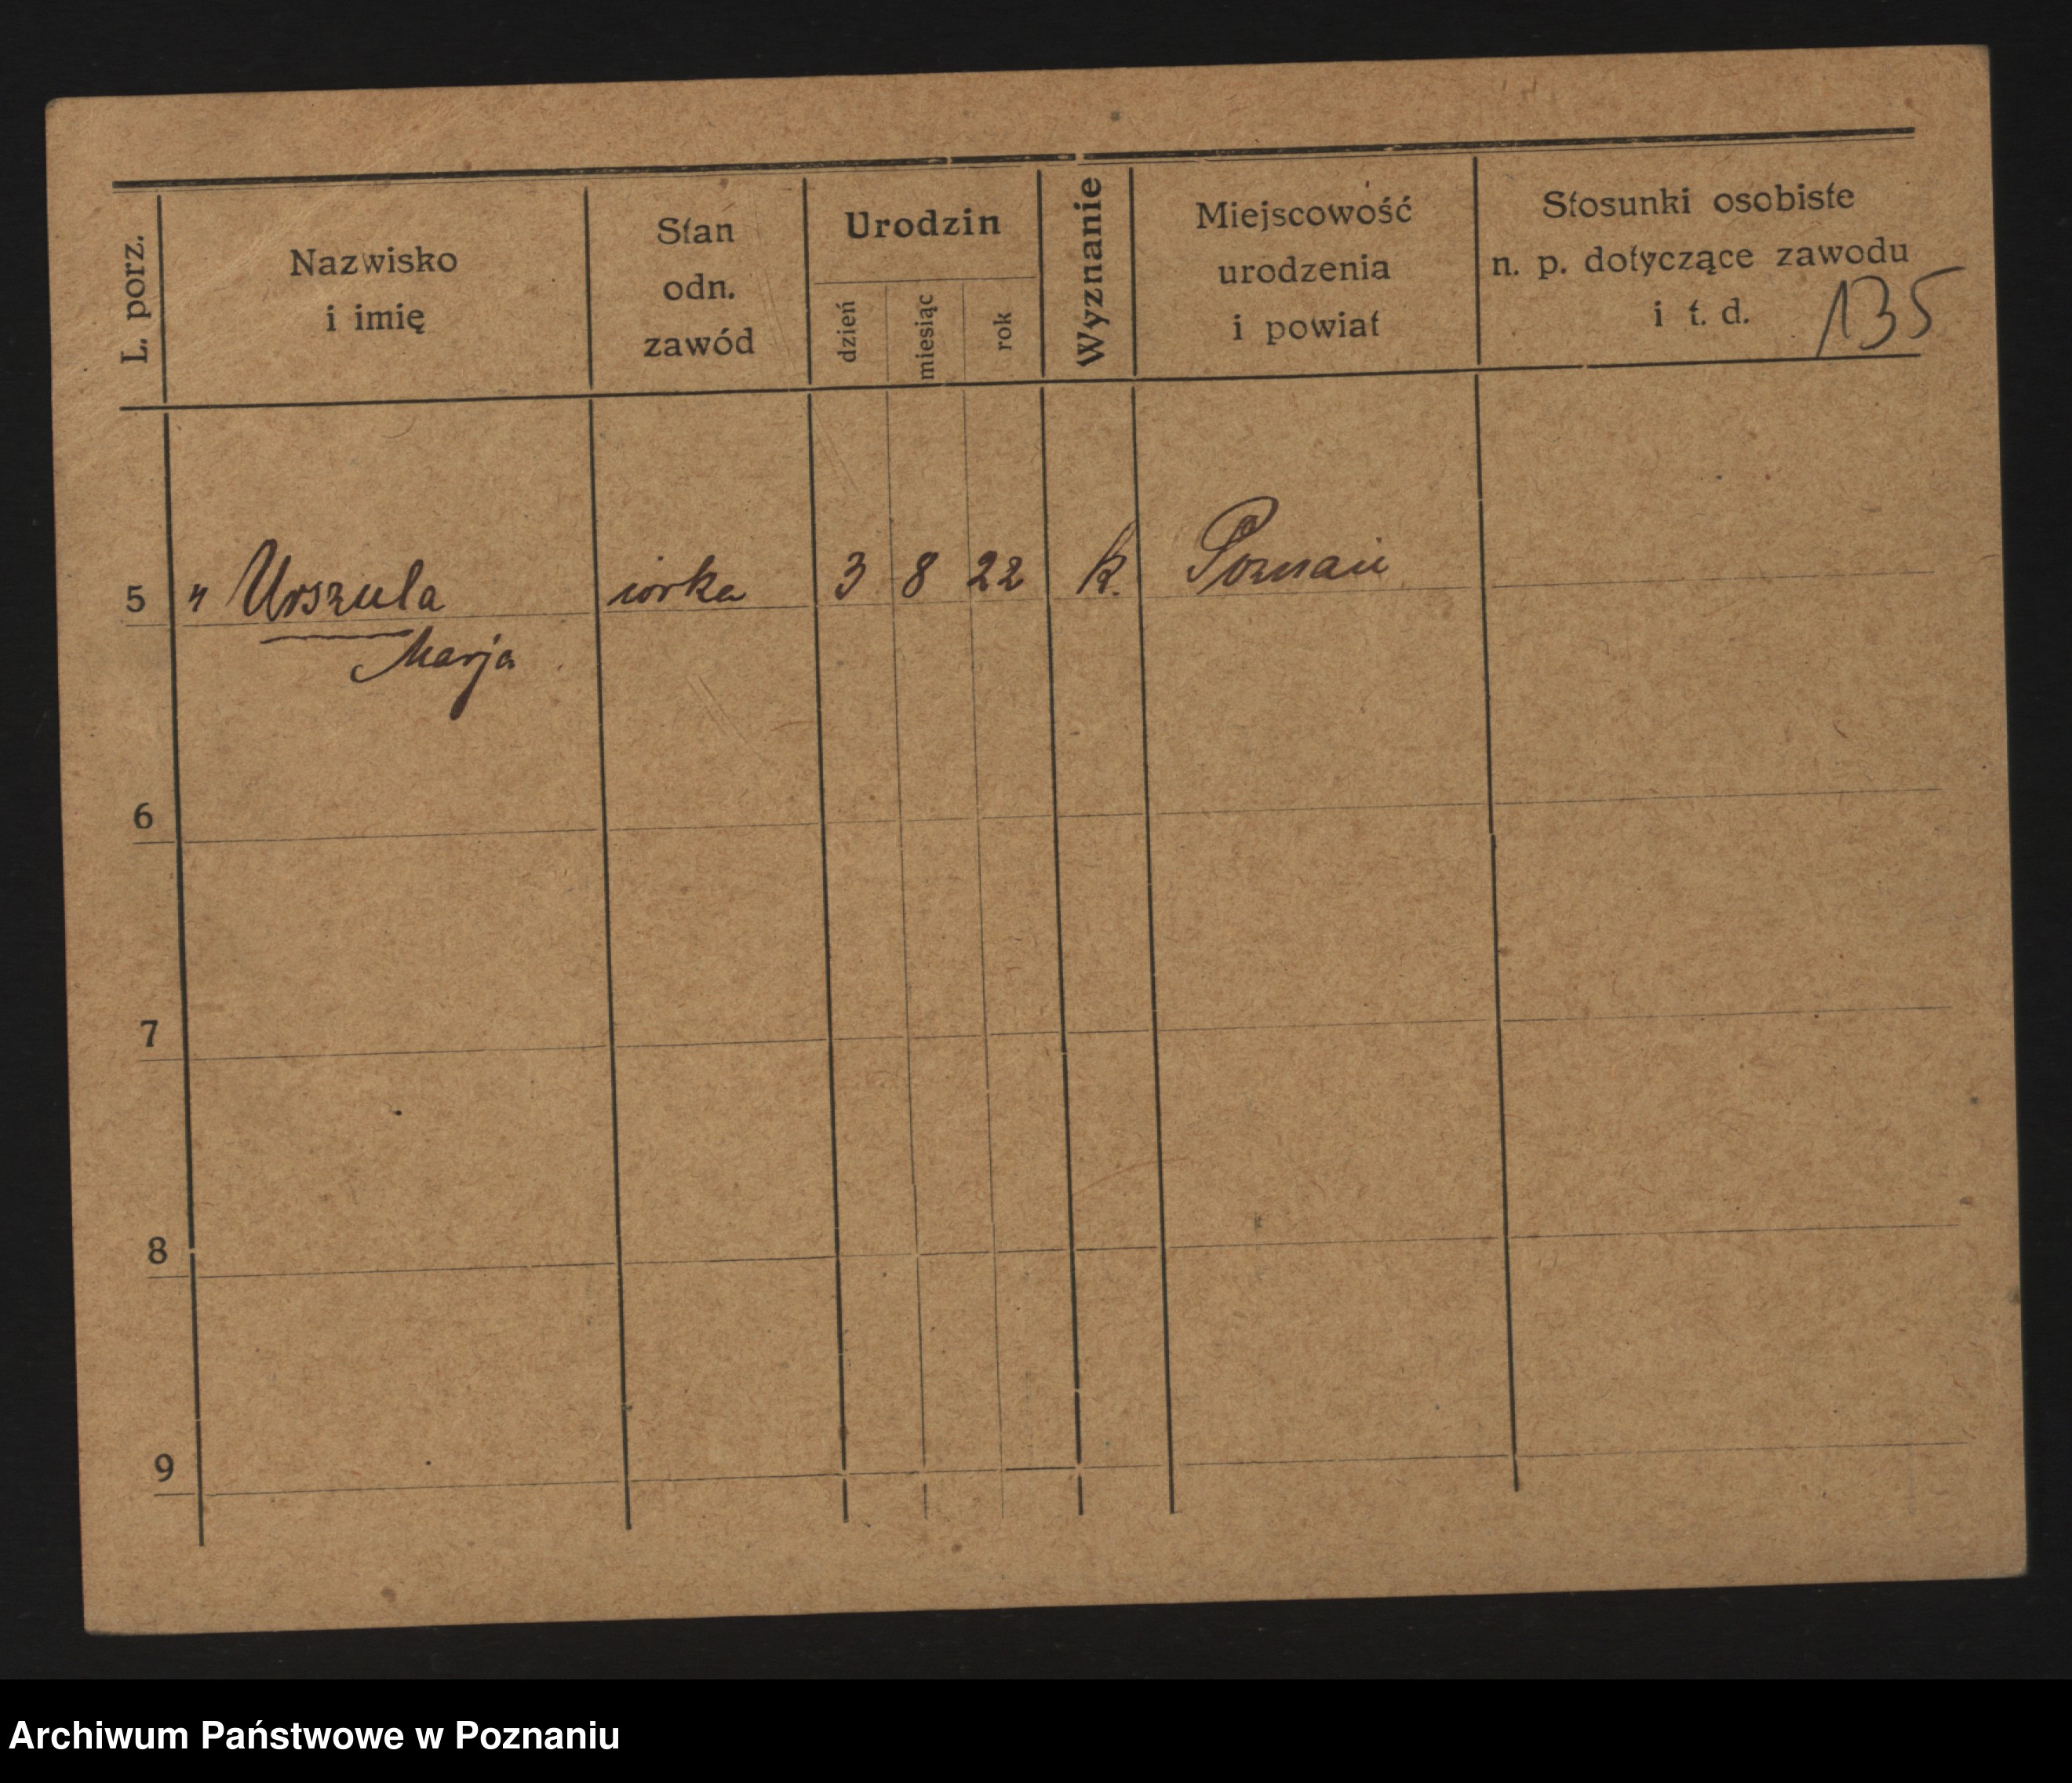 L. porz.
Nazwisko
i imię
Stan
odn.
zawód
Urodzin
dzień
miesiąc
rok
Wyznanie
Miejscowość
urodzenia
i powiat
Stosunki osobiste
n. p. dotyczące zawodu
i t. d.
135
5 " Urszula córka 3 8 22 k. Poznań
Marja
6
7
8
9
Archiwum Państwowe w Poznaniu